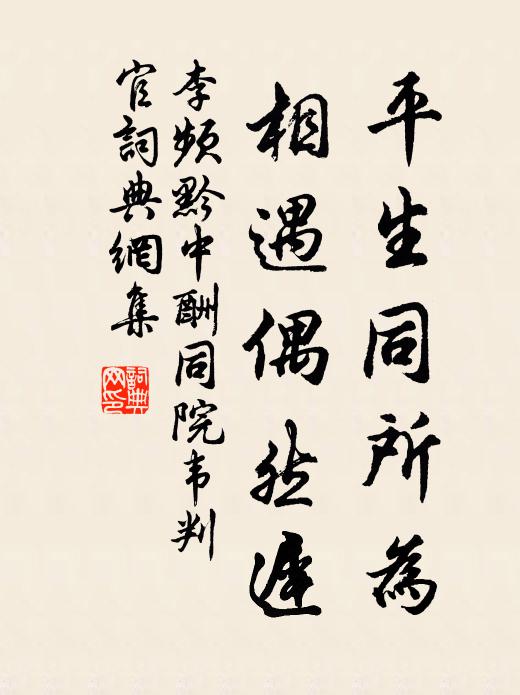 平生同所為
相遇偶然遲
李頻黔中酬同院韦判
官詞典網集
詞典網印